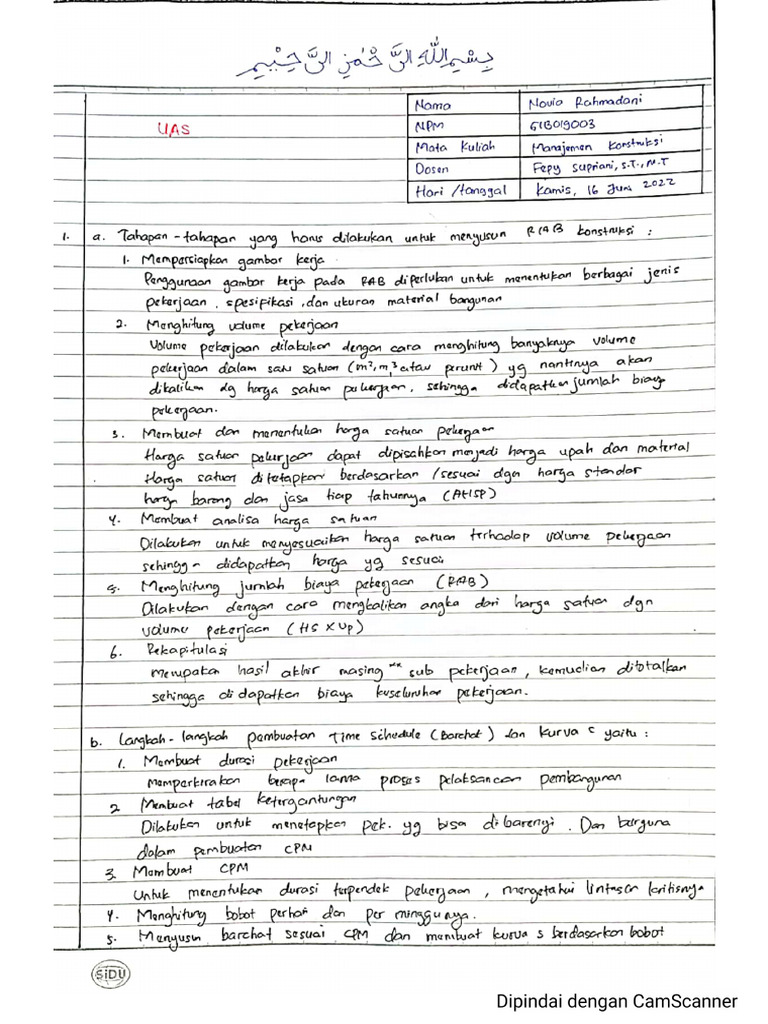 بِسْمِ اللهِ الرَّحْمٰنِ الرَّحِيْمِ
UAS
Nama Novia Rahmadani
NPM G1B019003
Mata Kuliah Manajemen Konstruksi
Dosen Fepy Supriani, S.T., M.T
Hari /tanggal Kamis, 16 Juni 2022
1. a. Tahapan-tahapan yang harus dilakukan untuk menyusun RAB konstruksi :
1. Mempersiapkan gambar kerja
Penggunaan gambar kerja pada RAB diperlukan untuk menentukan berbagai jenis
pekerjaan, spesifikasi, dan ukuran material bangunan
2. Menghitung volume pekerjaan
Volume pekerjaan dilakukan dengan cara menghitung banyaknya volume
pekerjaan dalam satu satuan (m², m³ atau perunit) yg nantinya akan
dikalikan dg harga satuan pekerjaan, sehingga didapatkan jumlah biaya
pekerjaan.
3. Membuat dan menentukan harga satuan pekerjaan
Harga satuan pekerjaan dapat dipisahkan menjadi harga upah dan material
Harga satuan ditetapkan berdasarkan /sesuai dgn harga standar
harga barang dan jasa tiap tahunnya (AHSP)
4. Membuat analisa harga satuan
Dilakukan untuk menyesuaikan harga satuan terhadap volume pekerjaan
sehingga didapatkan harga yg sesuai
5. Menghitung jumlah biaya pekerjaan (RAB)
Dilakukan dengan cara mengkalikan angka dari harga satuan dgn
volume pekerjaan (HS x Vp)
6. Rekapitulasi
Merupakan hasil akhir masing" sub pekerjaan, kemudian ditotalkan
sehingga didapatkan biaya keseluruhan pekerjaan.
b. Langkah-langkah pembuatan Time Schedule (Barchat) dan kurva S yaitu :
1. Membuat durasi pekerjaan
memperkirakan berapa lama proses pelaksanaan pembangunan
2. Membuat tabel ketergantungan
Dilakukan untuk menetapkan pek. yg bisa dibarengi. Dan berguna
dalam pembuatan CPM
3. Membuat CPM
Untuk menentukan durasi terpendek pekerjaan, mengetahui lintasan kritisnya
4. Menghitung bobot perhari dan per minggunya.
5. Menyusun barchat sesuai CPM dan membuat kurva s berdasarkan bobot
SiDU
Dipindai dengan CamScanner